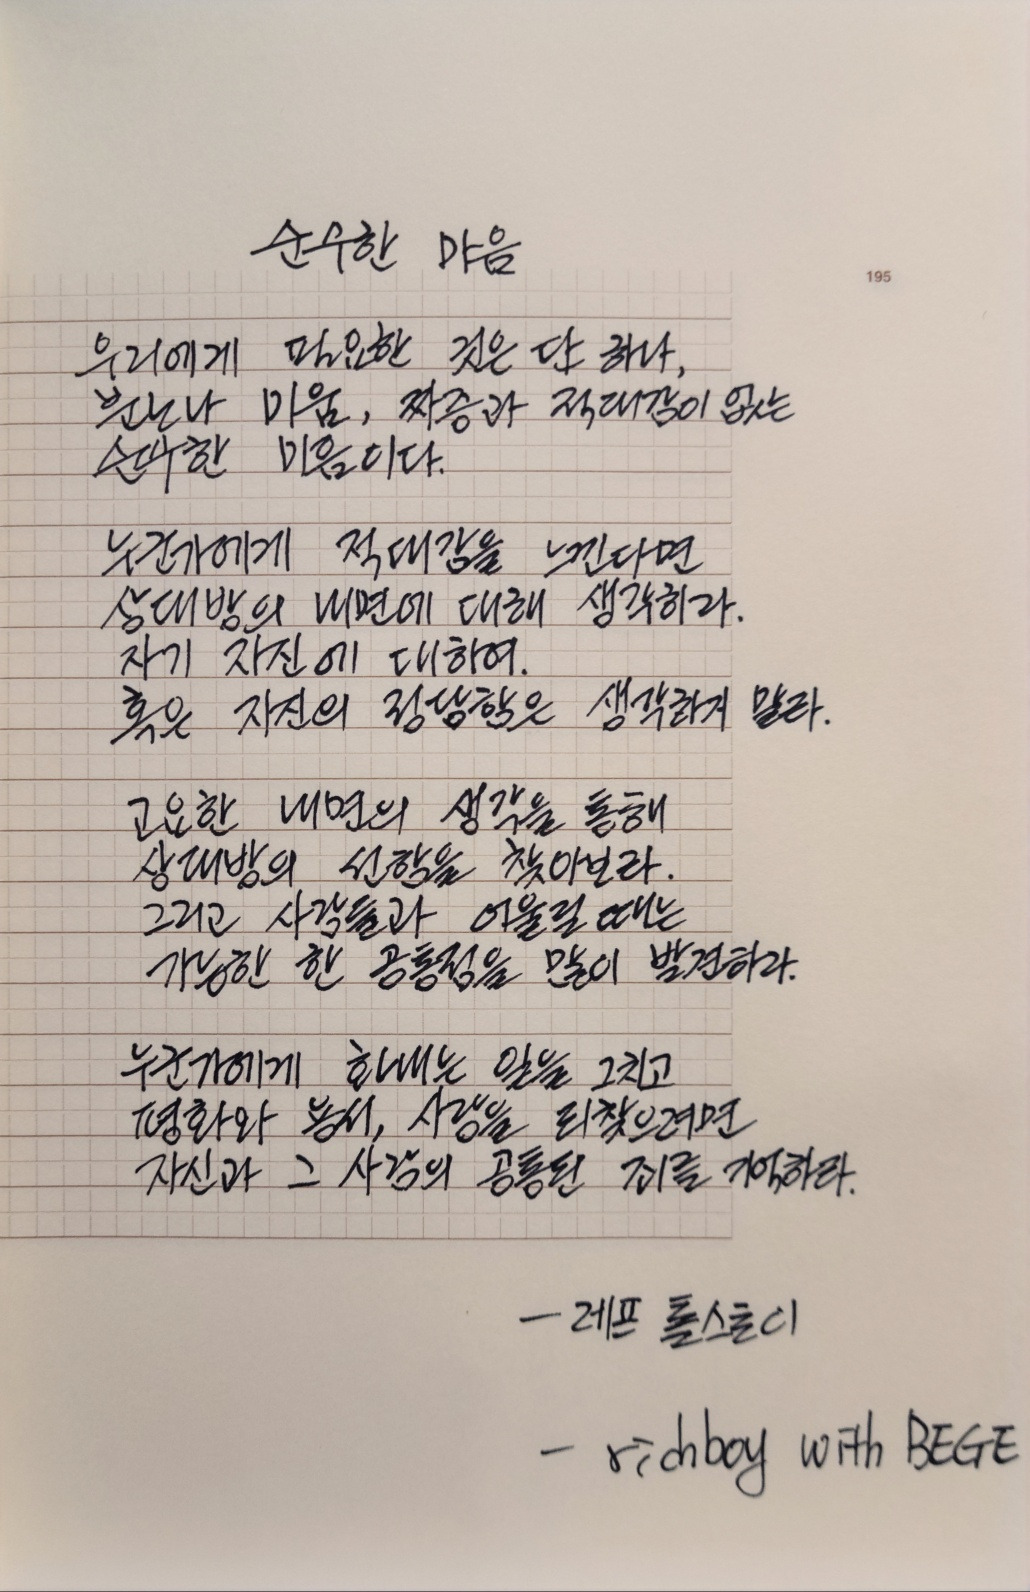 순수한 마음
195
우리에게 필요한 것은 단 하나,
분노나 미움, 짜증과 적대감이 없는
순수한 마음이다.
누군가에게 적대감을 느낀다면
상대방의 내면에 대해 생각하라.
자기 자신에 대하여.
혹은 자신의 정당함은 생각하지 말라.
고요한 내면의 생각을 통해
상대방의 선함을 찾아보라.
그리고 사람들과 어울릴 때는
가능한 한 공통점을 많이 발견하라.
누군가에게 화내는 일을 그치고
평화와 용서, 사랑을 되찾으려면
자신과 그 사람의 공통된 죄를 기억하라.
- 레프 톨스토이
- richboy with BEGE